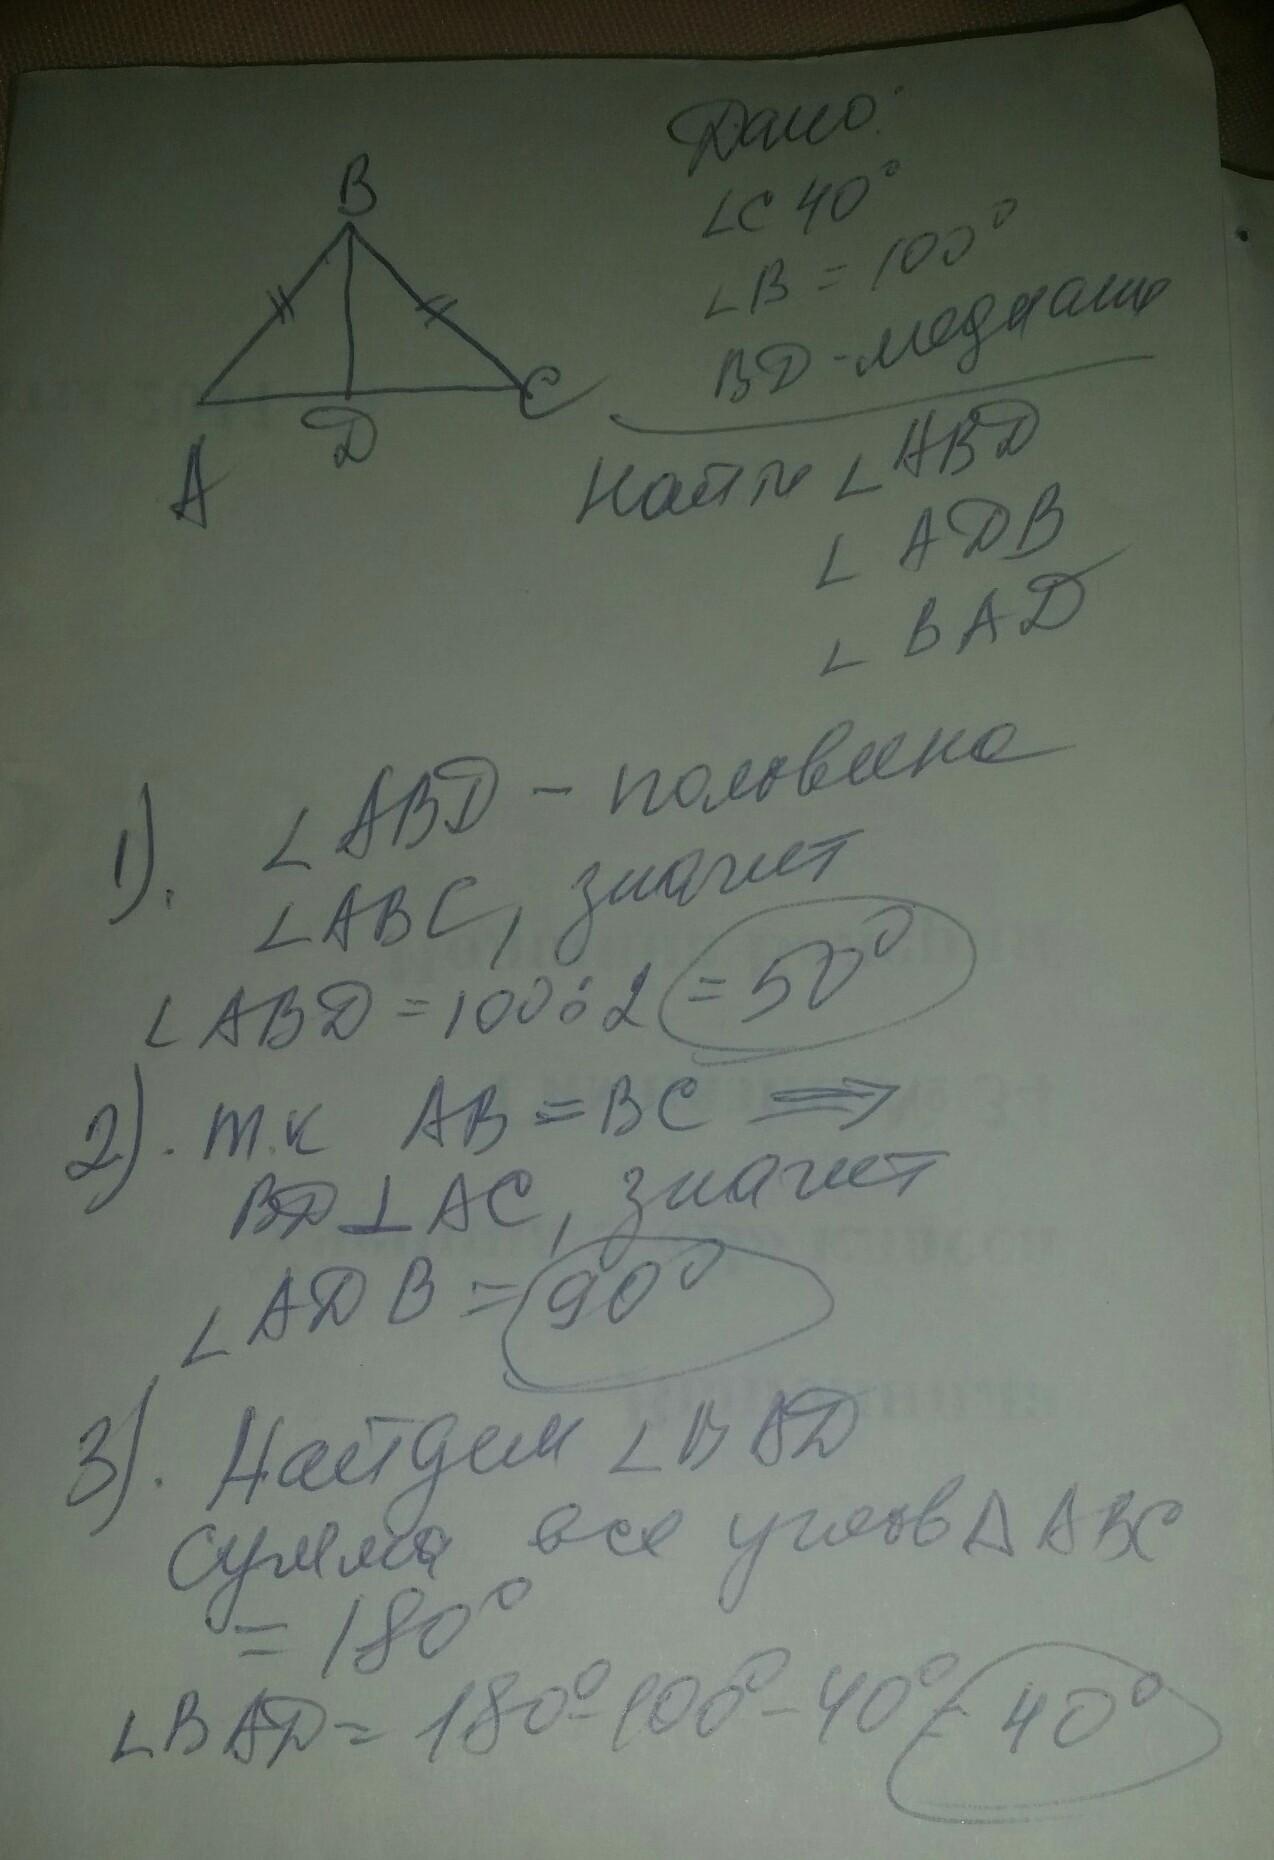 B
A
D
C
Дано:
∠C 40°
∠B = 100°
BD - медиана
Найти ∠ABD
∠ADB
∠BAD
1). ∠ABD - половина
∠ABC, значит
∠ABD = 100:2 = 50°
2). т.к AB = BC ⟹
BD⊥AC, значит
∠ADB = 90°
3). Найдем ∠BAD
Сумма все углов △ABC
= 180°
∠BAD = 180° - 100° - 40° = 40°